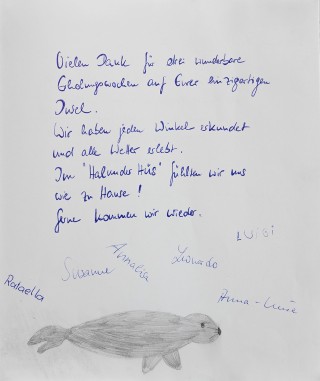 Vielen Dank für drei wunderbare
Erholungswochen auf Eurer einzigartigen
Insel.
Wir haben jeden Winkel erkundet
und alle Wetter erlebt.
Im "Halunder Hüs" fühlten wir uns
wie zu Hause!
Gerne kommen wir wieder.
LUIGI
Annalia
Leonardo
Susanne
Rafaella
Anna-Luise